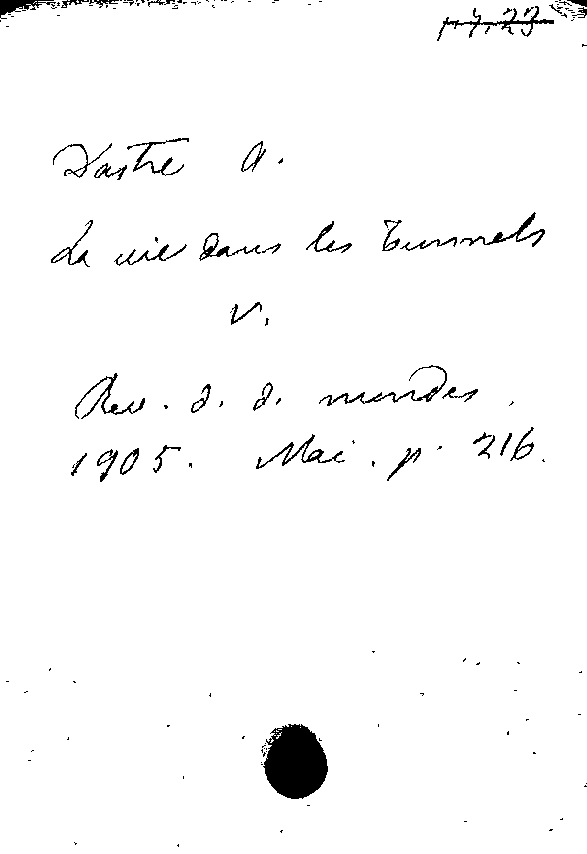 Dastre A.
La vie dans les tunnels
v.
Rev. d. d. mondes.
1905. Mai. p. 216.